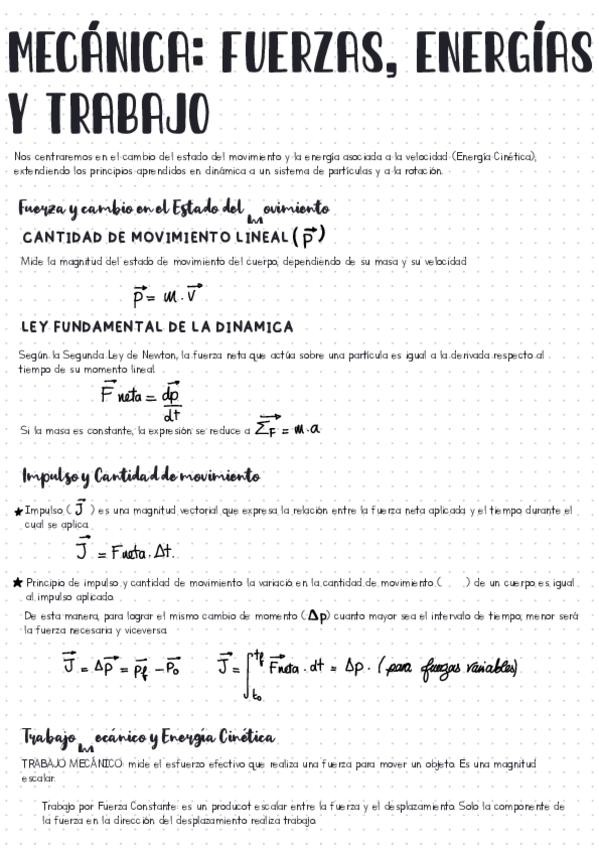 MECÁNICA: FUERZAS, ENERGÍAS
Y TRABAJO
Nos centraremos en el cambio del estado del movimiento y la energía asociada a la velocidad (Energía Cinética),
extendiendo los principios aprendidos en dinámica a un sistema de partículas y a la rotación.
Fuerza y cambio en el Estado del Movimiento
CANTIDAD DE MOVIMIENTO LINEAL (p⃗)
Mide la magnitud del estado de movimiento del cuerpo, dependiendo de su masa y su velocidad
p⃗ = m . v⃗
LEY FUNDAMENTAL DE LA DINAMICA
Según la Segunda Ley de Newton, la fuerza neta que actúa sobre una partícula es igual a la derivada respecto al
tiempo de su momento lineal
F⃗ neta = dp⃗/dt
Si la masa es constante, la expresión se reduce a Σ⃗F = m.a
Impulso y Cantidad de movimiento
★ Impulso ( J⃗ ) es una magnitud vectorial que expresa la relación entre la fuerza neta aplicada y el tiempo durante el
cual se aplica.
J⃗ = Fneta . Δt.
★ Principio de impulso y cantidad de movimiento la variació en la cantidad de movimiento ( ) de un cuerpo es igual
al impulso aplicado.
De esta manera, para lograr el mismo cambio de momento (Δp) cuanto mayor sea el intervalo de tiempo, menor será
la fuerza necesaria y viceversa
J⃗ = Δp⃗ = p⃗f − p⃗o J⃗ = ∫to^tf F⃗neta . dt = Δp . (para fuerzas variables)
Trabajo Mecánico y Energía Cinética
TRABAJO MECÁNICO: mide el esfuerzo efectivo que realiza una fuerza para mover un objeto. Es una magnitud
escalar.
Trabajo por Fuerza Constante: es un producot escalar entre la fuerza y el desplazamiento. Solo la componente de
la fuerza en la dirección del desplazamiento realiza trabajo.